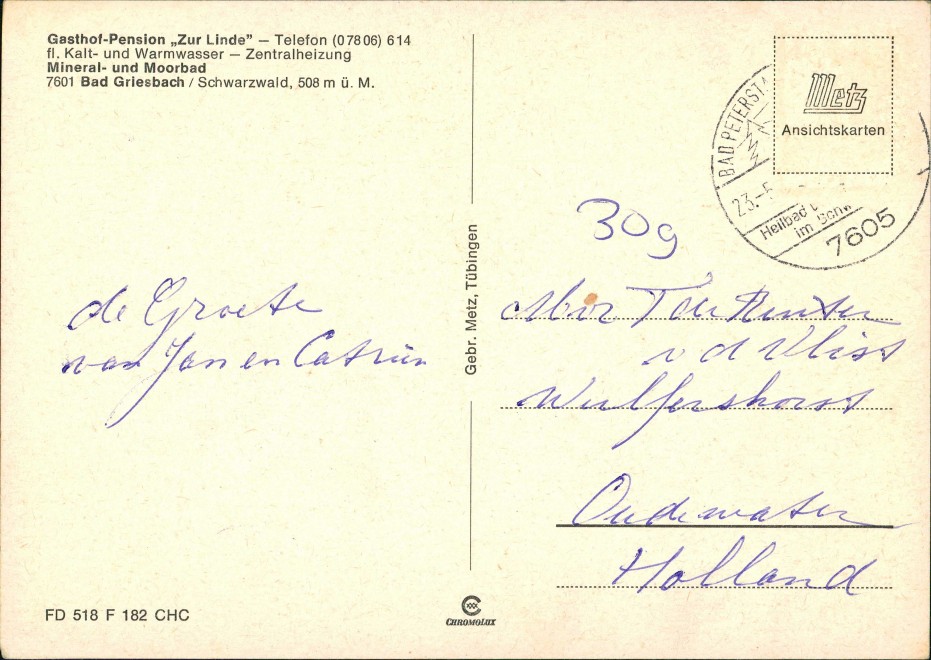 Gasthof-Pension „Zur Linde” — Telefon (07806) 614
fl. Kalt- und Warmwasser — Zentralheizung
Mineral- und Moorbad
7601 Bad Griesbach / Schwarzwald, 508 m ü. M.
Metz
Ansichtskarten
BAD PETERSTA
23.-5
Heilbad
im Schw
7605
30g
Gebr. Metz, Tübingen
de Groete
van Jan en Catrien
T de Ruiter
v d Vlist
Wulfershorst
Oudewater
Holland
FD 518 F 182 CHC
CHROMOLUX